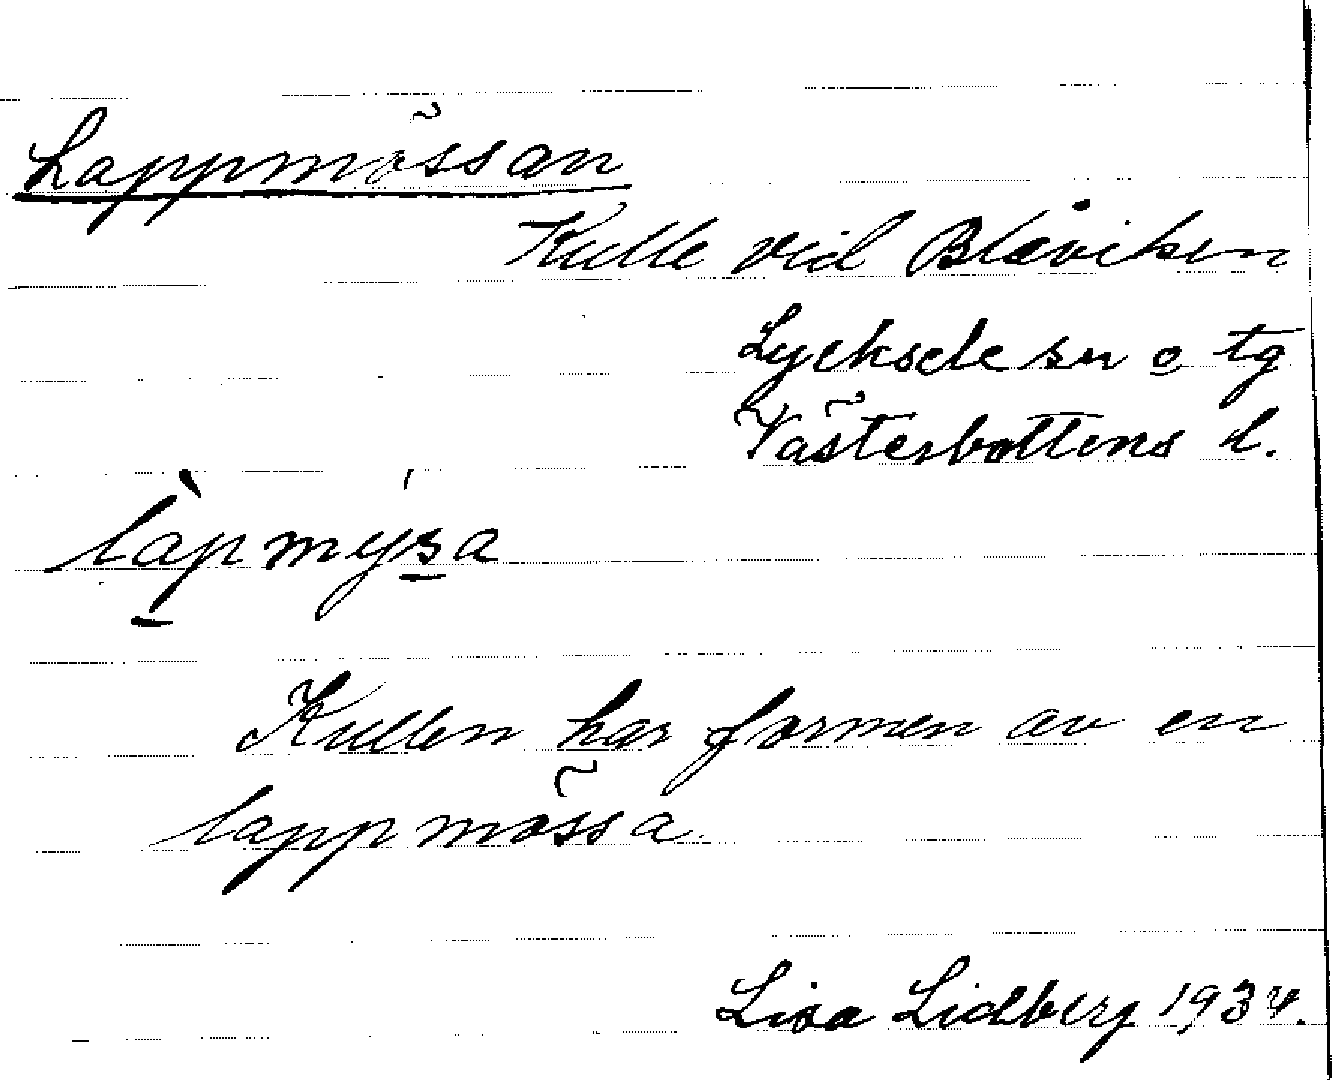 Lappmössan
Kulle vid Blåviksn
Lycksele sn o tg
Västerbottens l.
làp̲mýs̲a
Kullen har formen av en
lappmössa.
Lisa Lidberg 1934.